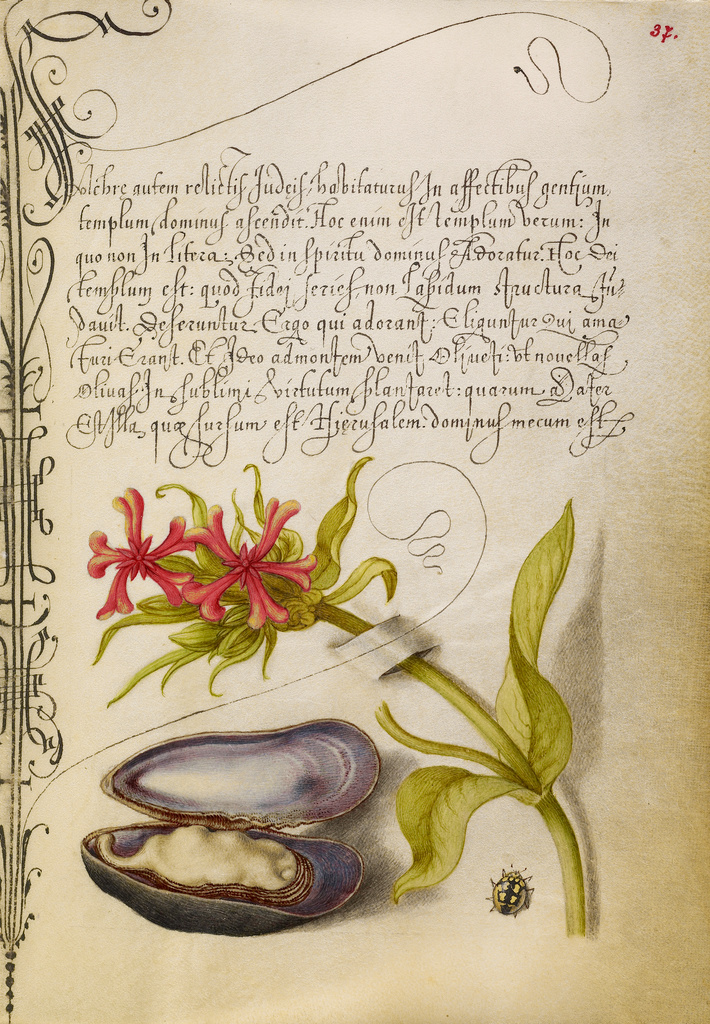 37.
Solebre autem relictis Judeis, habitaturus In affectibus gentium,
templum, dominus ascendit. Hoc enim est templum verum: In
quo non In litera: Sed in spiritu dominus Adoratur. Hoc Dei
templum est: quod Fidei series, non Lapidum structura Fu-
davit. Deseruntur Ergo qui adorant: Eliguntur Qui ama-
turi Erant. Et Ideo ad montem venit Oliveti: vt novellas
Olivas In sublimi virtutum plantaret: quarum Mater
Est Illa, quæ sursum est Hierusalem: dominus mecum est